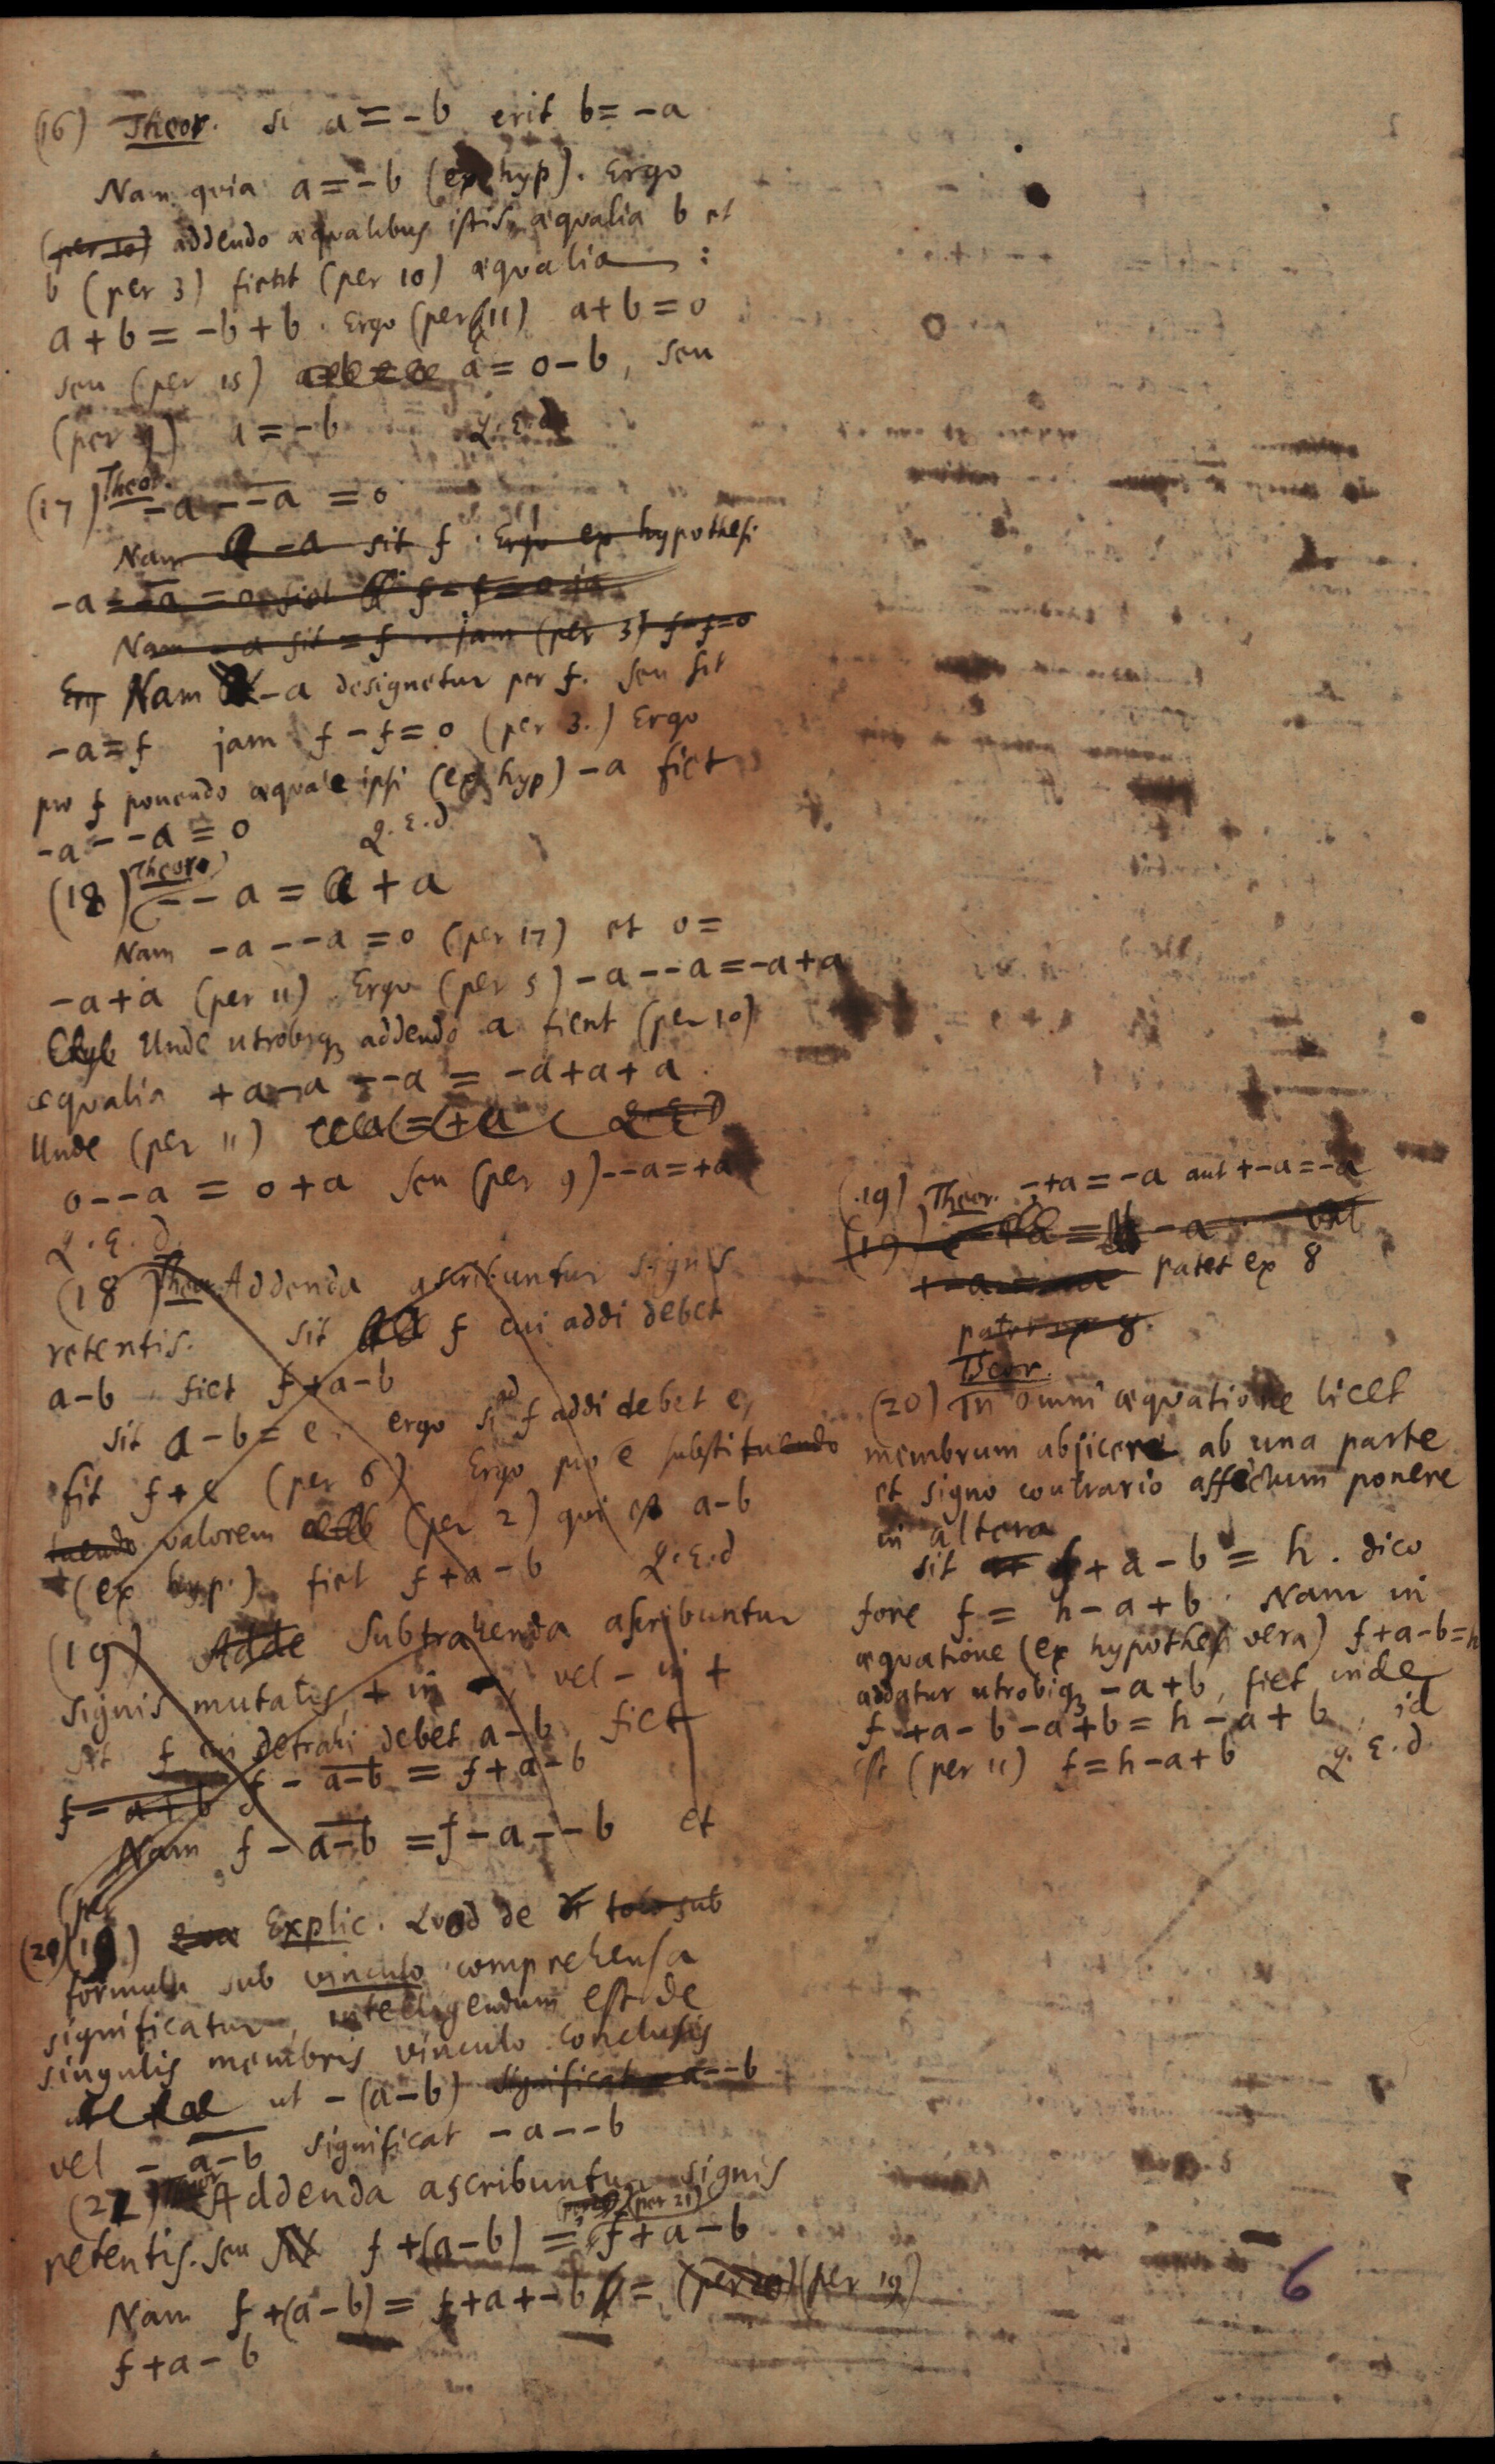 (16) Theor. si a = - b erit b = - a
Nam quia a = - b (ex hyp). Ergo
(per 10) addendo aequalibus istis aequalia b et
b (per 3) fient (per 10) aequalia :
a + b = - b + b. Ergo (per 11) a + b = 0
seu (per 15) a = 0 - b, seu
(per 9) a = - b Q.E.d
(17) Theor. - a - - a = 0
Nam - a sit f. Ergo ex hypothesi
- a - - a = 0 fiet f - f = 0
Nam - a sit = f jam (per 3) f - f = 0
Erg Nam - a designetur per f. seu sit
- a = f jam f - f = 0 (per 3.) Ergo
pro f ponendo aequale ipsi (ex hyp) - a fiet
- a - - a = 0 Q.E.d
(18) Theor. - - a = + a
Nam - a - - a = 0 (per 17) et 0 =
- a + a (per 11) Ergo (per 5) - a - - a = - a + a
Unde utrobiqꝫ addendo a fient (per 10)
aequalia + a - a - - a = - a + a + a.
Unde (per 11) Q.E.D
0 - - a = 0 + a seu (per 9) - - a = + a
Q.E.d.
(18) Theor Addenda ascribuntur signis
retentis. sit f cui addi debet
a - b fiet f + a - b
sit a - b = e. ergo si ad f addi debet e,
fit f + e (per 6) Ergo pro e substituendo
tuendo valorem (per 2) qui est a - b
(ex hyp.) fiet f + a - b Q.E.d
(19) Adde Subtrahenda ascribuntur
signis mutatis, + in -, vel - in +
sit f cui detrahi debet a - b fiet
f - a + b f - a - b = f + a - b
Nam f - a - b = f - a - - b et
(per
(20) (19) Explic. Quod de toto sub
formula sub vinculo comprehensa
significatur, intelligendum est de
singulis membris vinculo conclusis
ut - (a - b) significat - a - - b
vel - a - b significat - a - - b
(22) Theor Addenda ascribuntur signis
(per 21)
retentis. seu f + (a - b) = f + a - b
Nam f + (a - b) = f + a + - b = (per 20) (per 19)
f + a - b
(19) Theor. - + a = - a aut + - a = - a
(19) - + a = - a vel
+ - a = - a patet ex 8
patet ex 8.
Theor.
(20) In omni aequatione licet
membrum abjicere ab una parte
et signo contrario affectum ponere
in altera
sit f + a - b = h. dico
fore f = h - a + b. Nam in
aequatione (ex hypothesi vera) f + a - b = h
addatur utrobiqꝫ - a + b, fiet inde
f + a - b - a + b = h - a + b, id
est (per 11) f = h - a + b Q.E.d
6